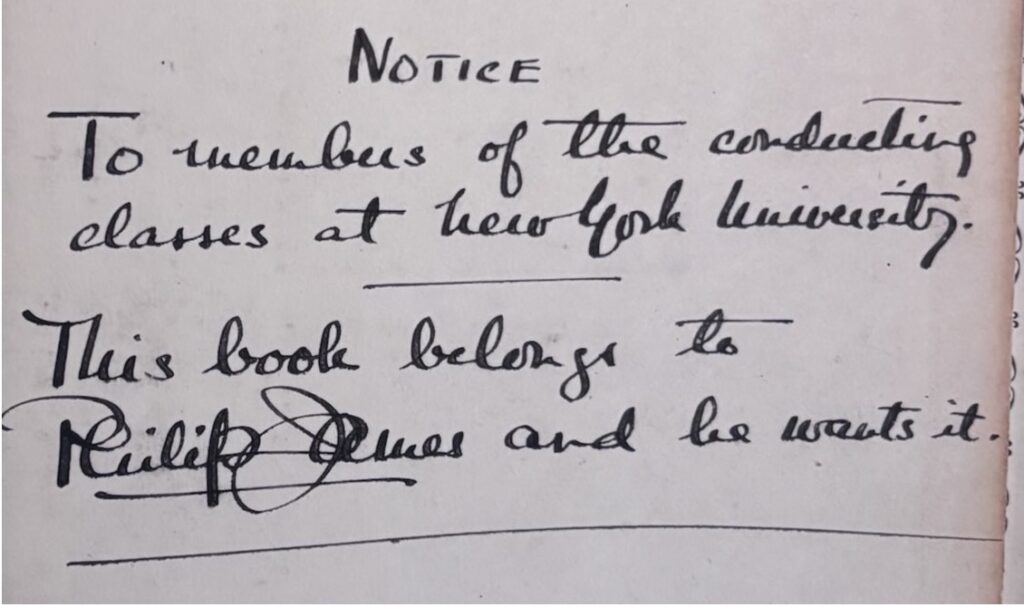 NOTICE
To members of the conducting
classes at New York University.
This book belongs to
Philip James and he wants it.